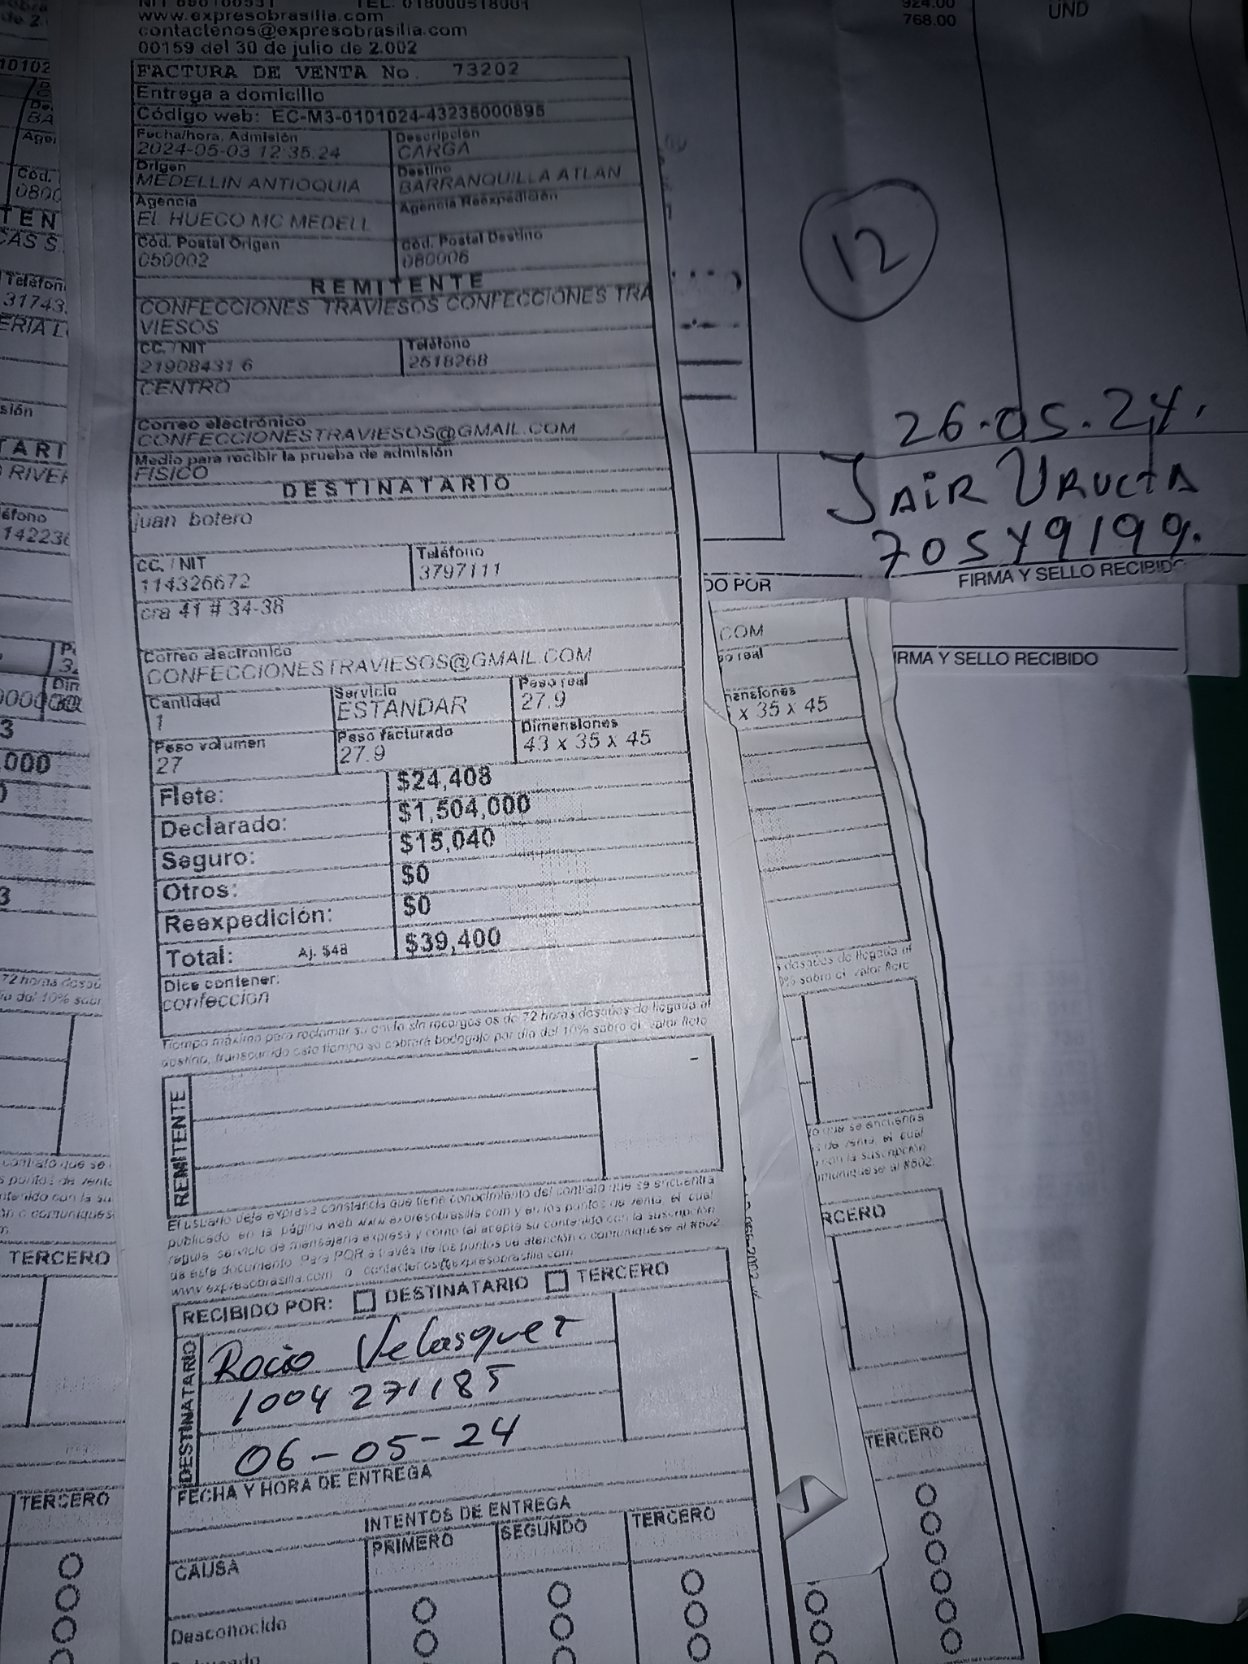 NIT 890100531 TEL. 018000518001
www.expresobrasilia.com
contactenos@expresobrasilia.com
00159 del 30 de julio de 2.002
FACTURA DE VENTA No. 73202
Entrega a domicilio
Código web: EC-M3-0101024-43235000895
Fecha/hora. Admisión Descripción
2024-05-03 12:35:24 CARGA
Origen Destino
MEDELLIN ANTIOQUIA BARRANQUILLA ATLAN
Agencia Agencia Reexpedición
EL HUECO MC MEDELL
Cód. Postal Origen Cód. Postal Destino
050002 080006
REMITENTE
CONFECCIONES TRAVIESOS CONFECCIONES TRA
VIESOS
CC. / NIT Teléfono
21908431 6 2518268
CENTRO
Correo electrónico
CONFECCIONESTRAVIESOS@GMAIL.COM
Medio para recibir la prueba de admisión
FISICO
DESTINATARIO
juan botero
CC. / NIT Teléfono
114326672 3797111
cra 41 # 34-38
Correo electronico
CONFECCIONESTRAVIESOS@GMAIL.COM
Cantidad Servicio Peso real
1 ESTANDAR 27.9
Peso volumen Peso facturado Dimensiones
27 27.9 43 x 35 x 45
Flete: $24,408
Declarado: $1,504,000
Seguro: $15,040
Otros: $0
Reexpedición: $0
Total: Aj. $48 $39,400
Dice contener:
confeccion
Tiempo máximo para reclamar su envío sin recargos es de 72 horas después de llegada al
destino, transcurrido este tiempo se cobrará bodegaje por día del 10% sobre el valor flete
REMITENTE
El usuario deja expresa constancia que tiene conocimiento del contrato que se encuentra
publicado en la página web www.expresobrasilia.com y en los puntos de venta, el cual
regula servicio de mensajería expresa y como tal acepta su contenido con la suscripción
de este documento. Para PQR a través de los puntos de atención o comuníquese al #602
www.expresobrasilia.com o contactenos@expresobrasilia.com
RECIBIDO POR: DESTINATARIO TERCERO
DESTINATARIO
Rocio Velasquez
1004 271185
06-05-24
FECHA Y HORA DE ENTREGA
INTENTOS DE ENTREGA
CAUSA PRIMERO SEGUNDO TERCERO
Desconocido
924.00
768.00
UND
12
26.05.24.
JAIR URUETA
70549199.
DO POR
FIRMA Y SELLO RECIBIDO
COM
RMA Y SELLO RECIBIDO
x 35 x 45
RCERO
TERCERO
10102
Cód.
0800
TEN
CAS S.
Teléfon
31743
ERIA L
sión
TARI
RIVER
éfono
14223
000
TERCERO
TERCERO